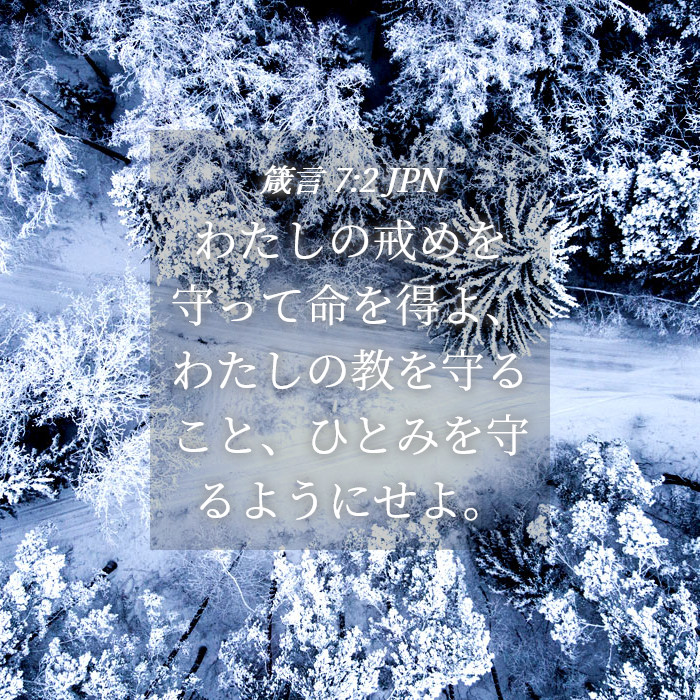 箴言 7:2 JPN
わたしの戒めを
守って命を得よ、
わたしの教を守る
こと、ひとみを守
るようにせよ。